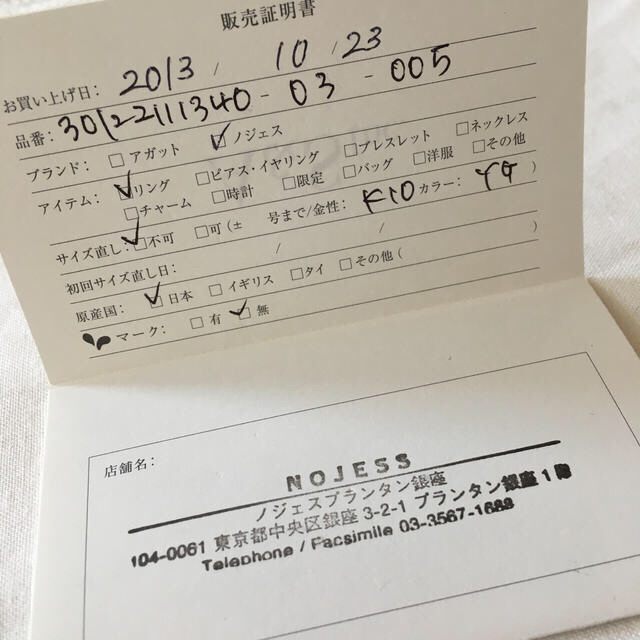 販売証明書
お買い上げ日： 2013 / 10 / 23
品番：3012-2111340-03-005
ブランド：□ アガット ☑ ノジェス
アイテム：☑リング □ピアス・イヤリング □ブレスレット □ネックレス
□チャーム □時計 □限定 □バッグ □洋服 □その他
サイズ直し：☑不可 □可（± 号まで/金性： K10 カラー： YG ）
初回サイズ直し日： / /
原産国：☑日本 □イギリス □タイ □その他（ ）
マーク： □ 有 ☑ 無
店舗名：
NOJESS
ノジェスプランタン銀座
104-0061 東京都中央区銀座 3-2-1 プランタン銀座 1 階
Telephone / Facsimile 03-3567-1688